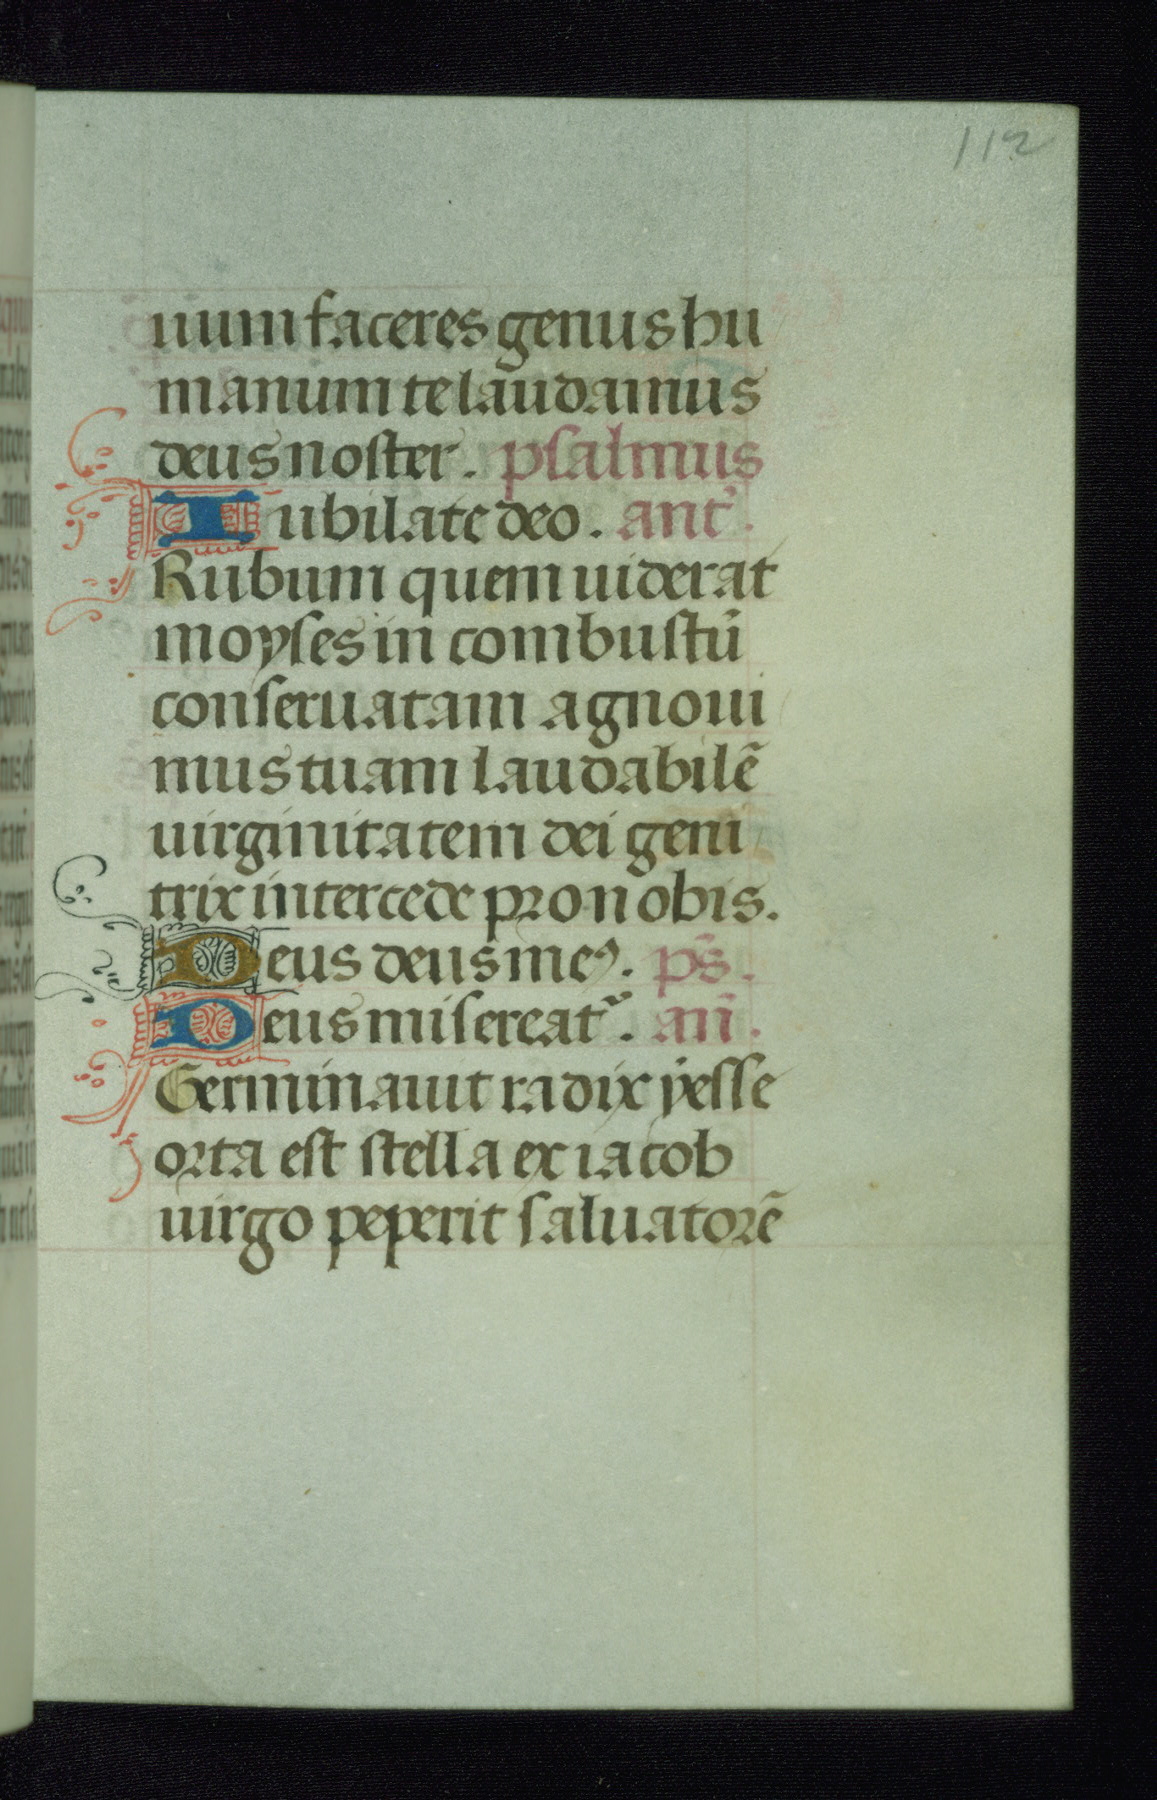 112
num faceres genus hu
manum te laudamus
deus noster. psalmus
Iubilate deo. ant̃.
Rubum quem uiderat
moyses in combustũ
conseruatam agnoui
mus tuam laudabilẽ
uirginitatem dei geni
trix intercede pro nobis.
Deus deus meꝰ. ps̃.
Deus misereat᷑. añ.
Germinauit radix yesse
orta est stella ex iacob
uirgo peperit saluatorẽ